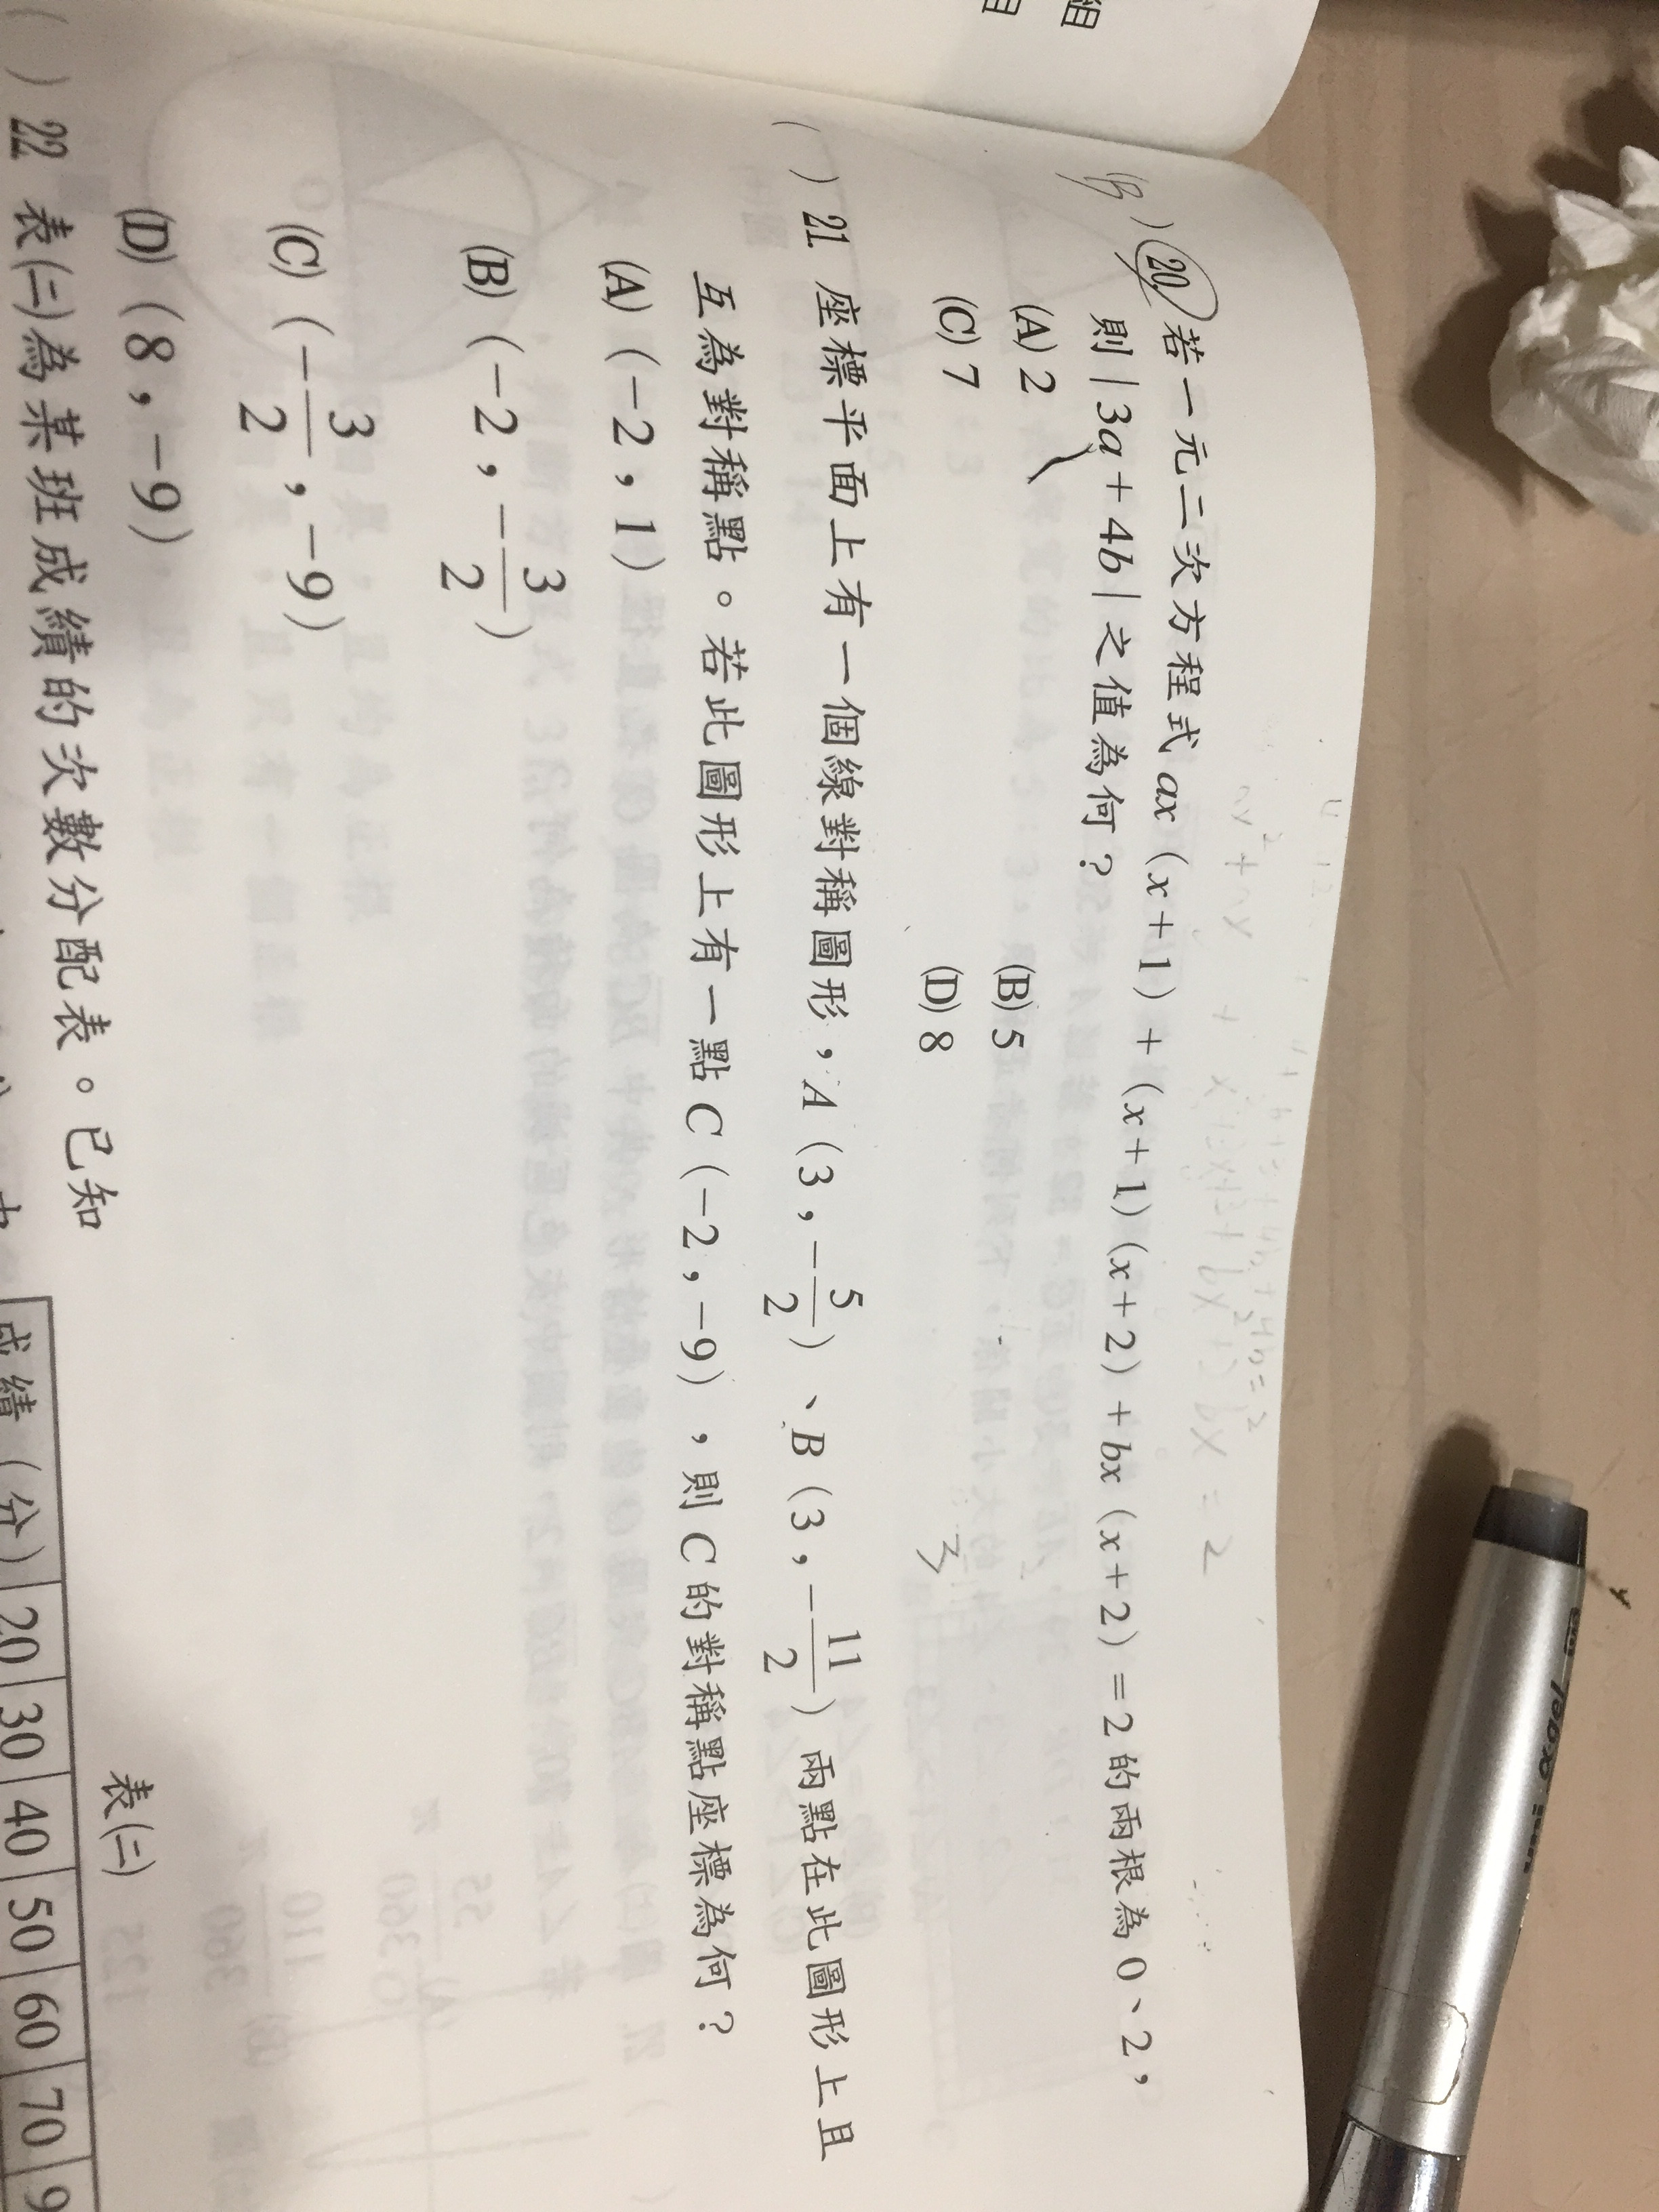 組
目
(B) 20. 若一元二次方程式ax(x+1)+(x+1)(x+2)+bx(x+2)=2的兩根為0、2,
則|3a+4b|之值為何?
(A) 2 (B) 5
(C) 7 (D) 8
3
( ) 21. 座標平面上有一個線對稱圖形,A(3,-5/2)、B(3,-11/2)兩點在此圖形上且
互為對稱點。若此圖形上有一點C(-2,-9),則C的對稱點座標為何?
(A) (-2,1)
(B) (-2,-3/2)
(C) (-3/2,-9)
(D) (8,-9)
( ) 22. 表(二)為某班成績的次數分配表。已知
表(二)
成績(分) 20 30 40 50 60 70 9